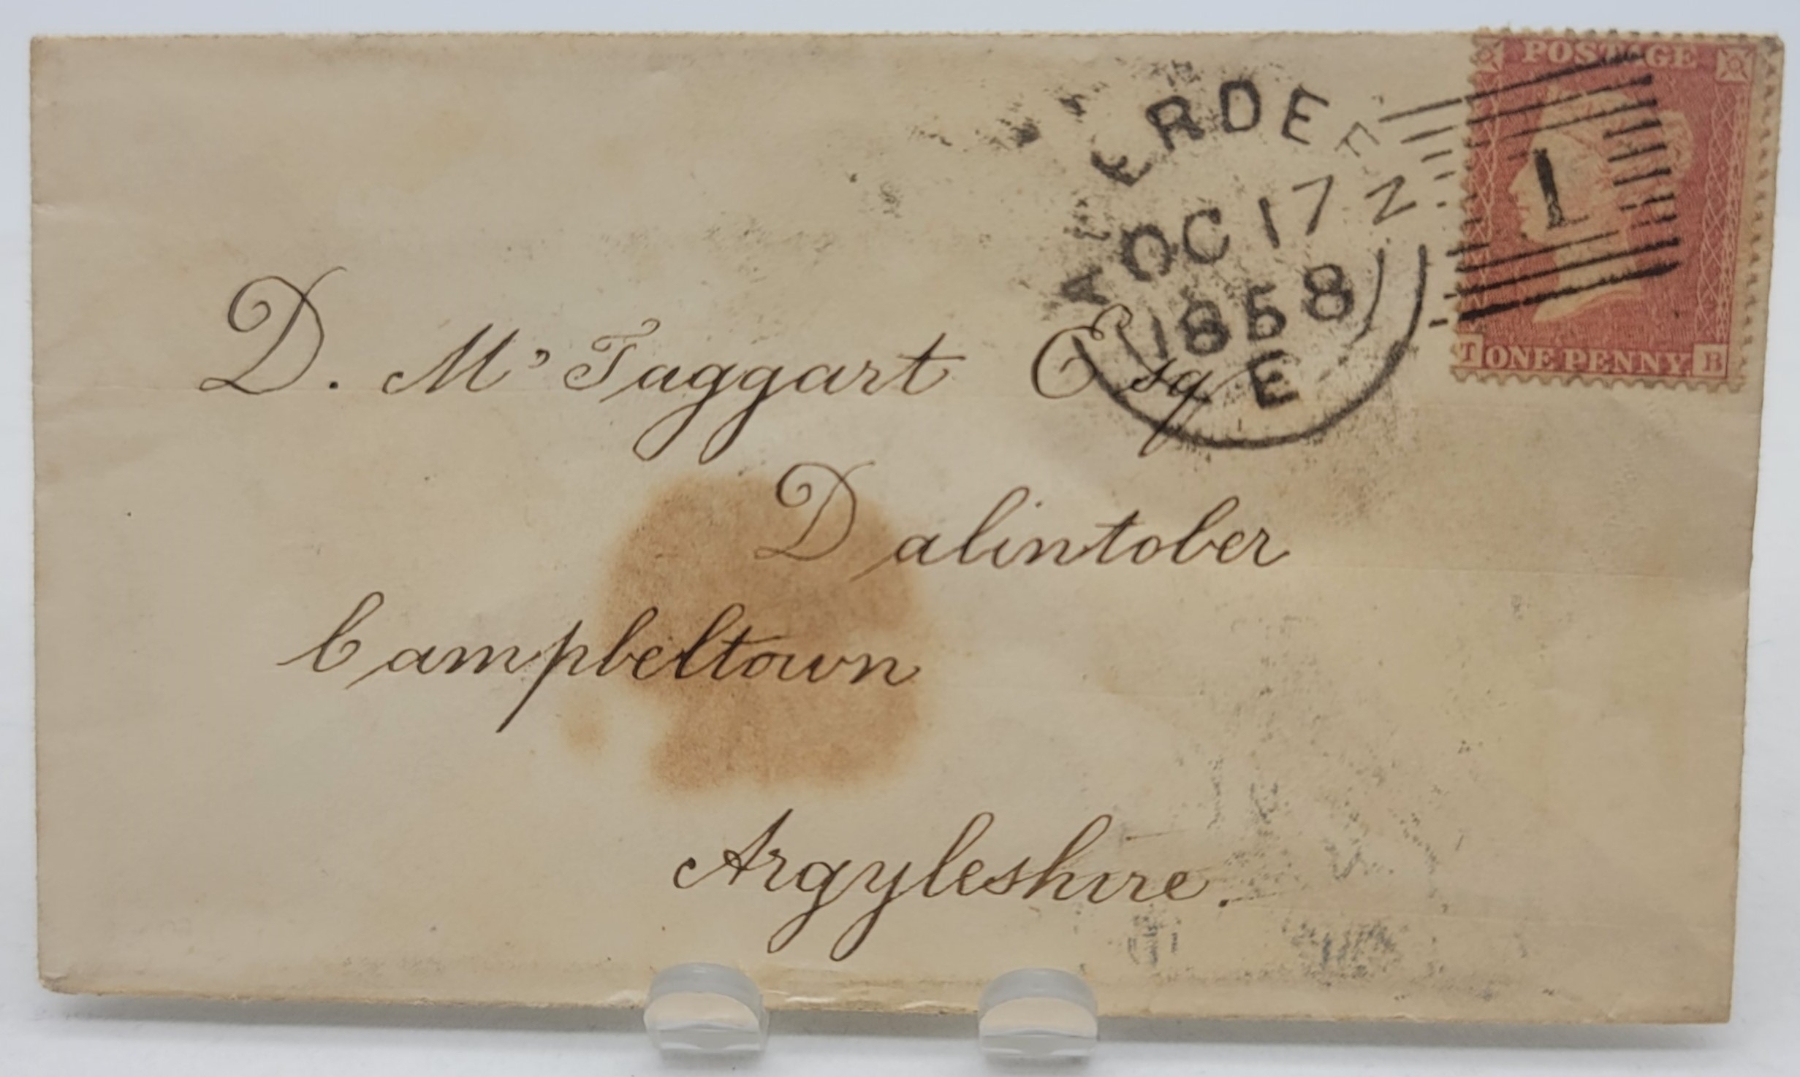 POSTAGE
ABERDEEN
OC 17
1858
E
1
T ONE PENNY B
D. Mc Taggart Esq
Dalintober
Campbeltown
Argyleshire.